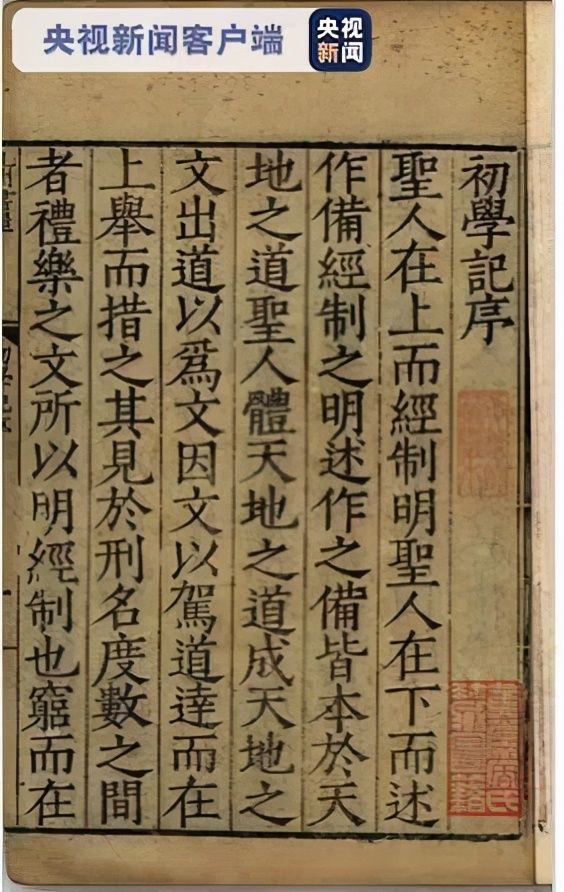 央视新闻客户端
央视
新闻
初學記序
聖人在上而經制明聖人在下而述
作備經制之明述作之備皆本於天
地之道聖人體天地之道成天地之
文出道以爲文因文以駕道達而在
上舉而措之其見於刑名度數之間
者禮樂之文所以明經制也窮而在